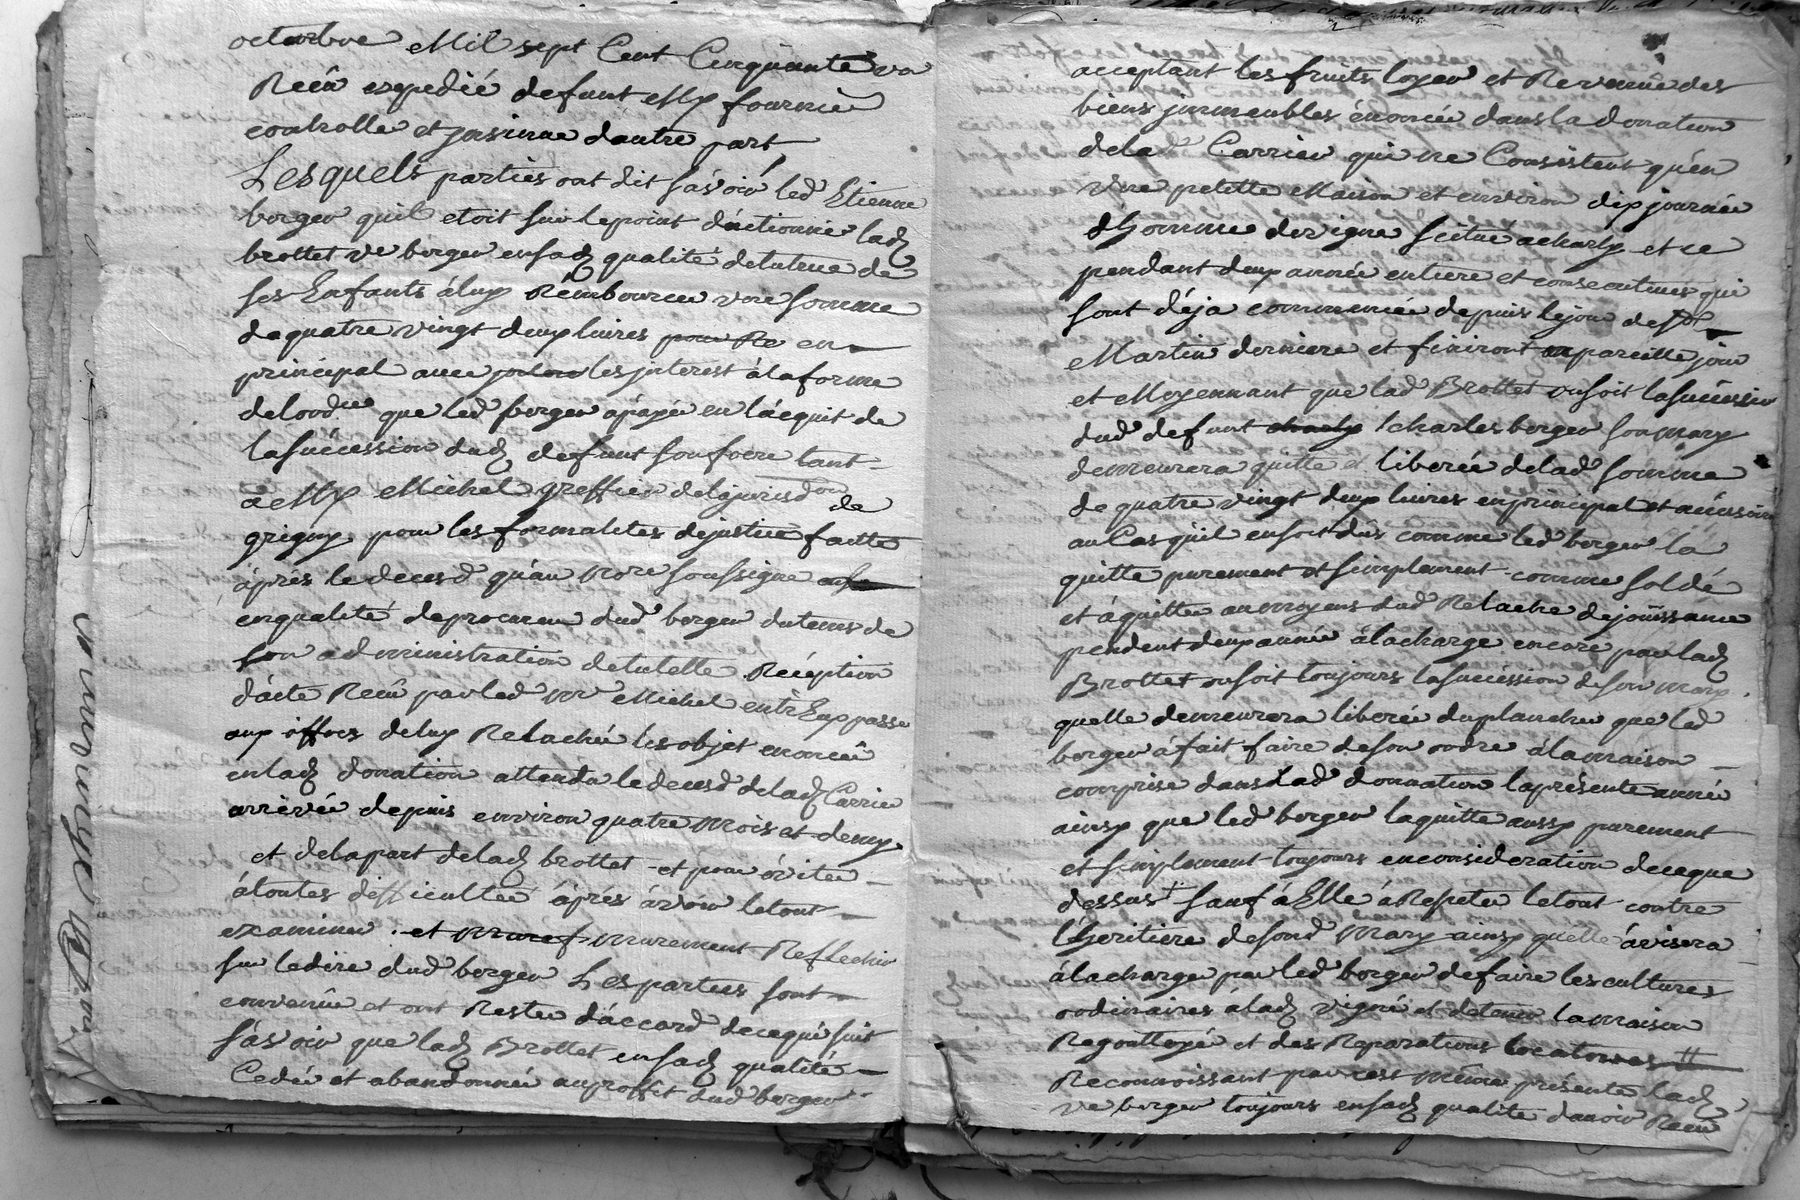 octobre Mil sept Cent Cinquante
Recû expedié defunt Mᵉ fournier
controlle et insinué dautre part
Lesquels parties ont dit sávoir led Etienne
berger quil etoit sur le point dáctionné lad
brottet vᵉ berger en sad qualité de tutrice de
ses Enfants á luy Rémbourcer une somme
de quatre vingt deux livres en
principal avec les jnterest á la forme
de lordᶜᵉ que led berger á payé en lácquit de
la sucession dud defunt son frere tant
a Mᵉ Michel greffier de la jurisdᵒⁿ de
grigny pour les formalites de justice faitte
áprés le decesd quau Nore soussigné
en qualité de procureur dud berger du tems de
son administration de tutelle Réception
dácte Recû par led Mᵉ Michel entr Eux passé
aux óffres de luy Relaché les objet enoncéû
en lad donation attendu le decesd de lad Carrier
arrivée depuis environ quatre mois et demy
et de la part de lad brottet et pour éviter
á toutes difficultée áprés ávoir le tout
examiner et meuref murement Reflechir
sur le dire dud berger Les parties sont
convenûe et ont Rester dáccord de ce qui suit
sávoir que lad Brottet en sad qualité
Cedée et abandonnée au proffit dud berger
acceptant les fruits loyer et Revenûe des
biens jmmeubles énoncée dans la donation
de lad Carrier qui ne Consistent quén
Une petitte Maison et environ dix journée
dhomme de vigne scitue a charly et ce
pendant deux année entiere et consecutives qui
sont déja commencée depuis le jour de Sᵗ
Martin derniere et finiront a pareille jour
et Moyennant que lad Brottet ou soit la sucéssion
dud defunt charly charles berger son mary
demeurera quitte et liberée de lad somme
de quatre vingt deux livres en principal et accessoire
au Cas quil en soit dûs comme led berger la
quitte purement et simplement comme soldé
et áquitter au moyens dud Relache de joüissance
pendent deux année á la charge encore par lad
Brottet ou soit toujours la sucession de son mary
quelle demeurera liberée du plancher que led
berger á fait faire de son ordre á la maison
comprise dans Lad donnation la présente année
ainsy que led berger la quitte aussy purement
et simplement toujours en consideration de ce que
dessus sauf á Elle á Repeter le tout contre
lheritiere de sond mary ainsy quelle ávisera
á la charge par led berger de faire les cultures
ordinaires á lad vigne et detenir la maison
Regouttoyé et des Reparations locatoires
Reconnoissant par cest même présente lad
vᵉ berger toujours en sad qualité davoir Receu